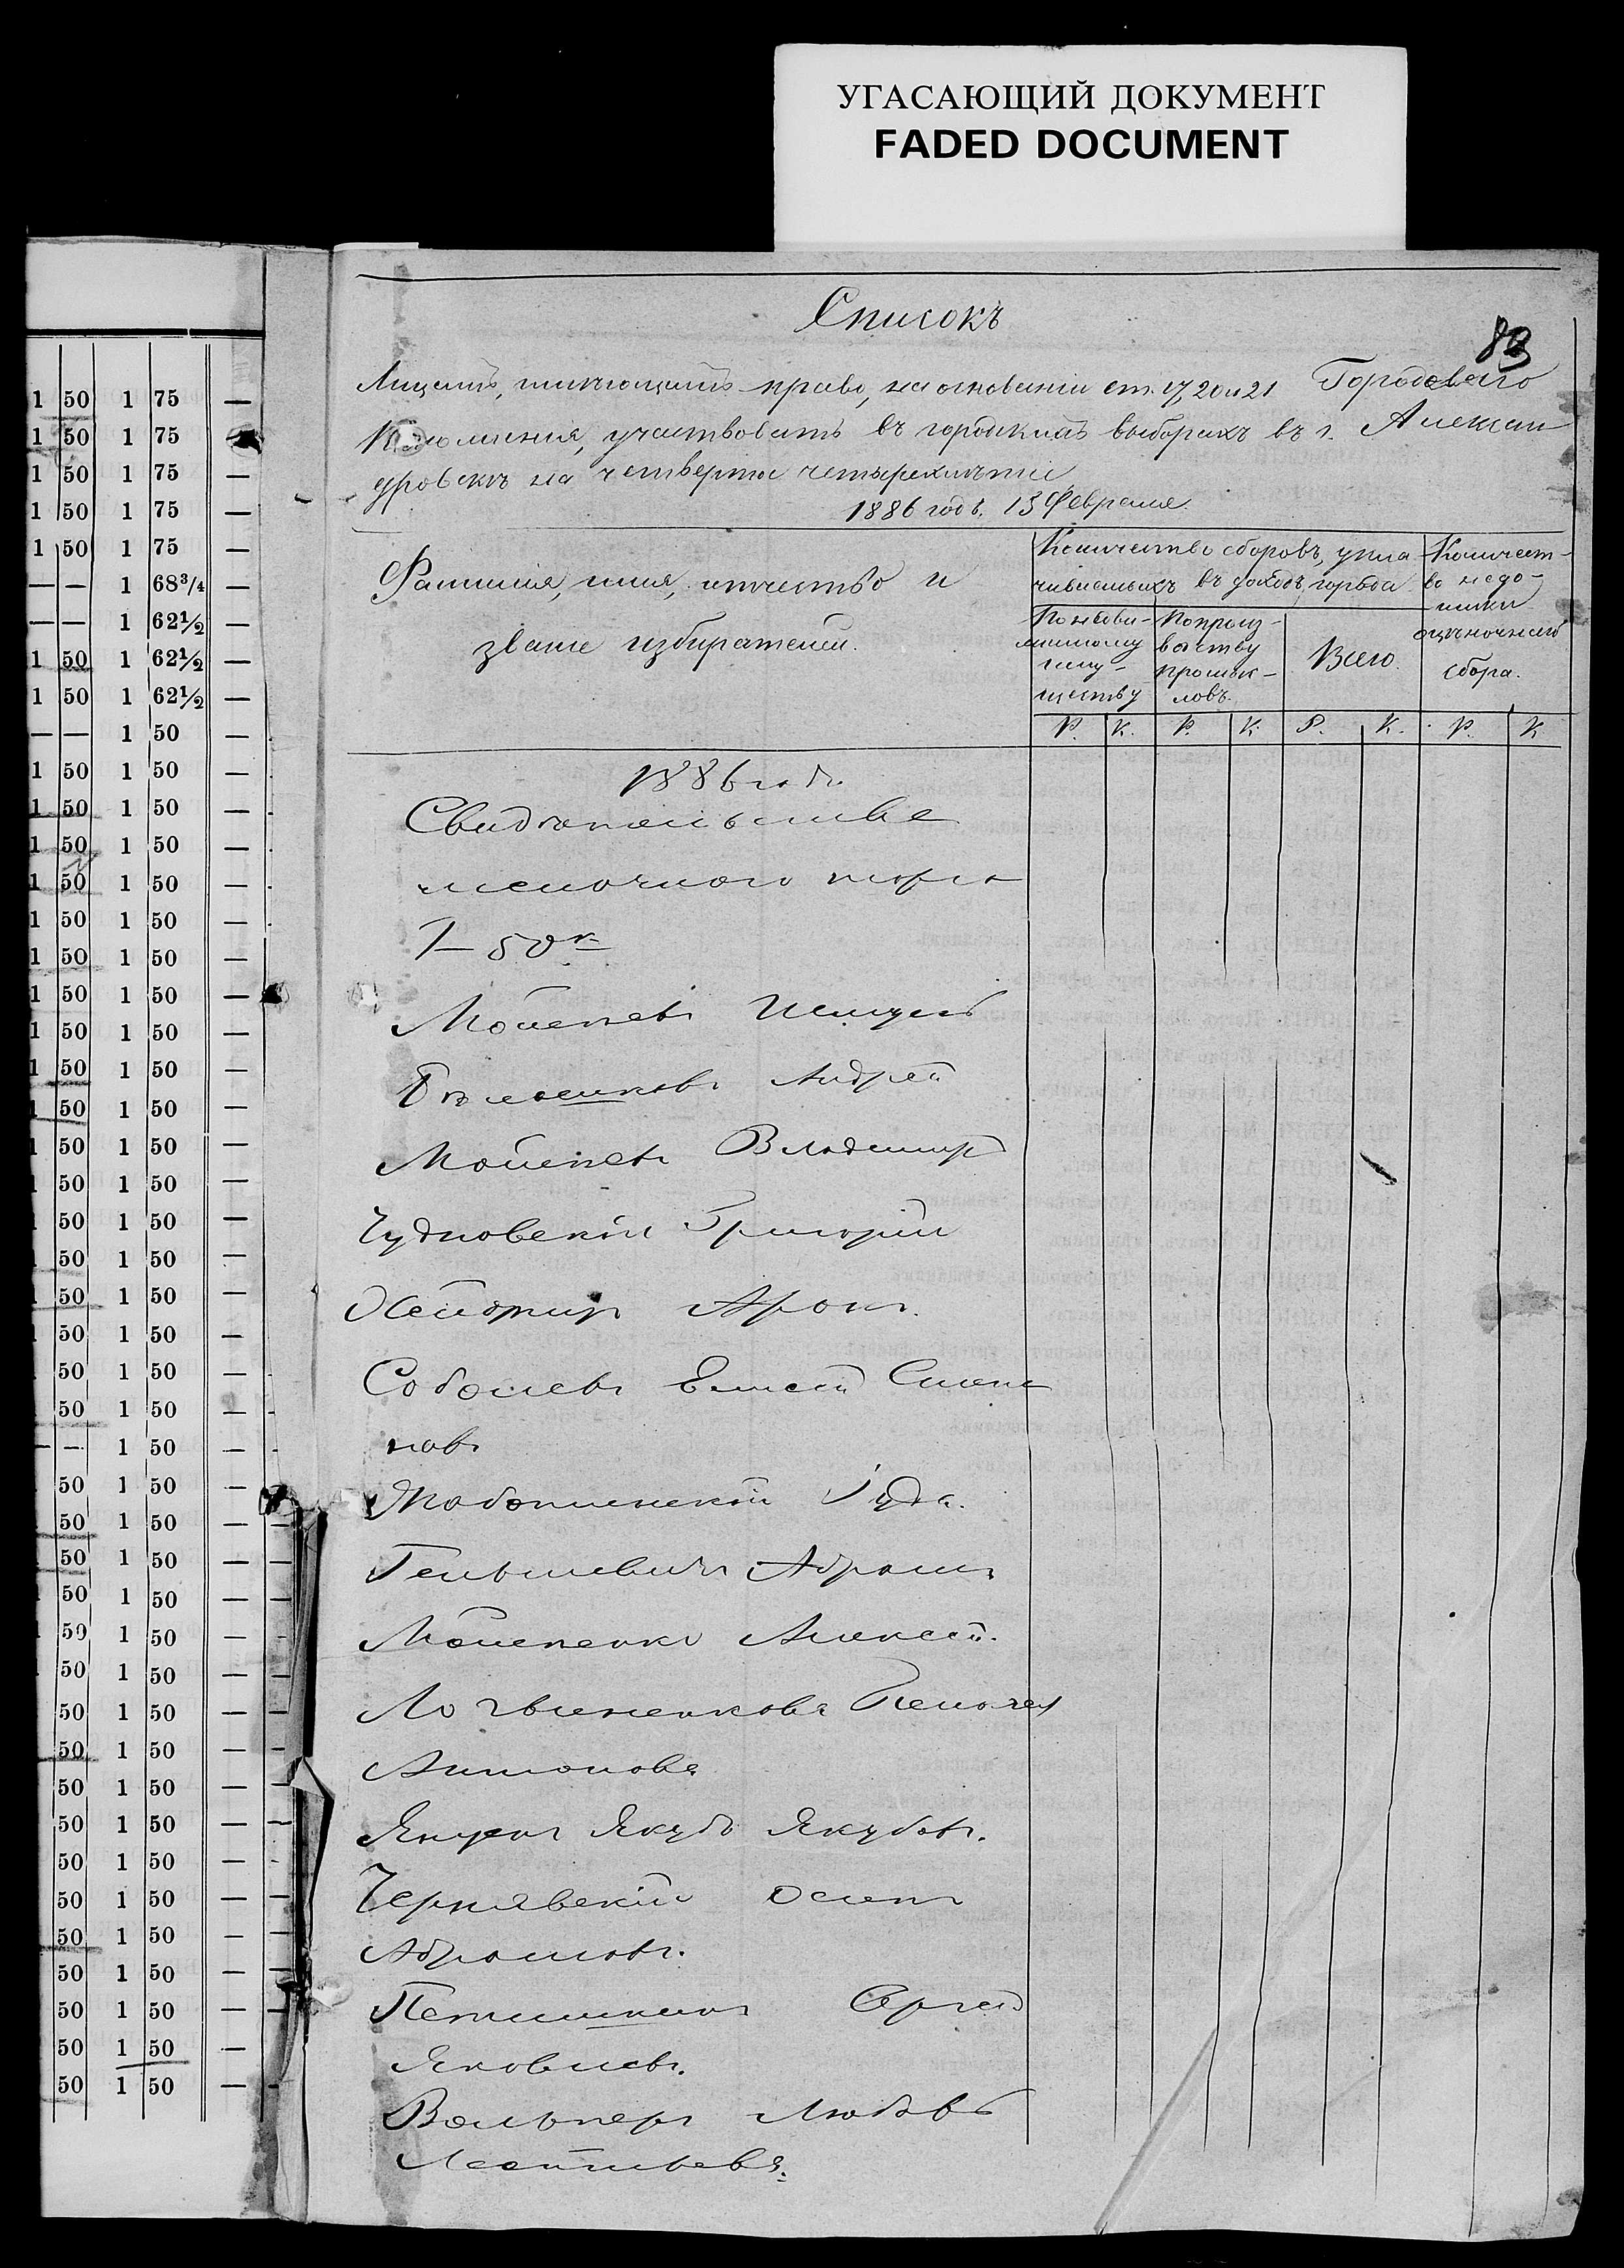 УГАСАЮЩИЙ ДОКУМЕНТ
FADED DOCUMENT
1 50 1 75 —
1 50 1 75
1 50 1 75 —
1 50 1 75 —
1 50 1 75 —
— — 1 68 3/4 —
— — 1 62 1/2 —
1 50 1 62 1/2 —
1 50 1 62 1/2 —
— — 1 50 —
1 50 1 50 —
1 50 1 50 —
1 50 1 50 —
1 50 1 50 —
1 50 1 50 —
1 50 1 50 —
1 50 1 50 —
1 50 1 50 —
1 50 1 50 —
1 50 1 50 —
1 50 1 50 —
1 50 1 50 —
1 50 1 50 —
1 50 1 50 —
50 1 50 —
50 1 50 —
50 1 50 —
50 1 50 —
— — 1 50 —
50 1 50 —
50 1 50 —
50 1 50 —
50 1 50 —
50 1 50 —
50 1 50 —
50 1 50 —
50 1 50 —
50 1 50 —
50 1 50 —
50 1 50 —
50 1 50 —
50 1 50 —
50 1 50 —
50 1 50 —
50 1 50 —
50 1 50 —
Списокъ
Лицамъ, имѣющимъ право, на основаніи ст. 17, 20 и 21 Городоваго
Положенія, участвовать въ городскихъ выборахъ въ г. Алексан
дровскѣ на четвертое четырехлѣтіе
1886 годъ. 13 Февраля.
Фамилія, имя, отчество и
званіе избирателей.
Количество сборовъ, упла
чиваемыхъ въ доходъ города
По недви-
жимому
иму-
ществу
По произ-
водству
промыс-
ловъ.
Всего.
Количест-
во недо-
имки
оцѣночнаго
сбора.
Р. К. Р. К Р. К. Р. К
1886 годъ.
Свидѣтельства
мелочного торга
1 — 50 к
Мойсеевъ
Андрей
Мойсеевъ Владиміръ
Чудновскій Григорій
Аронъ.
Соболевъ Елисей Семе
новъ
Жаботинскій Іуда.
Абрамъ
Мойсеенко Алексей.
Логвиненкова Пелагея
Антонова
Якубъ Якубовъ.
Чернявскій Осипъ
Абрамовъ.
Сергей
Яковлевъ.
Вольперъ Любовь
Леонтьева.